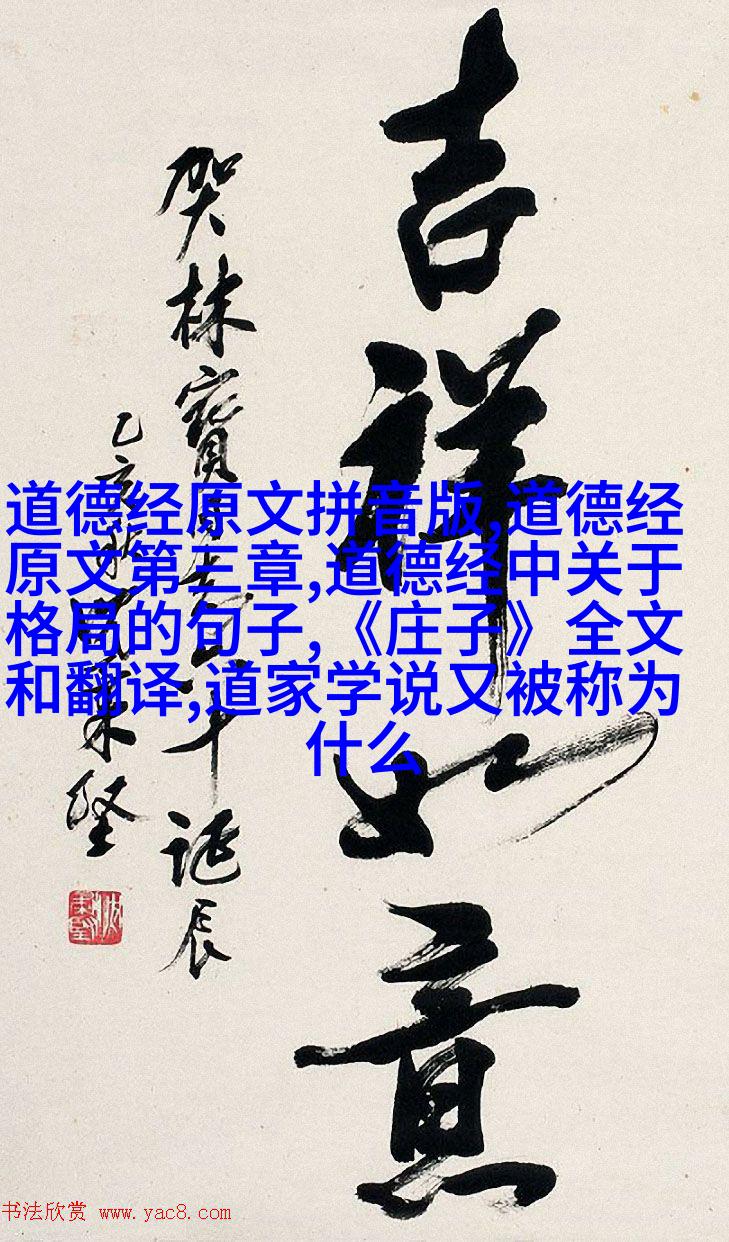 吉祥如意
贺林宝
诞辰
乙亥
道德经原文拼音版,道德经
原文第三章,道德经中关于
格局的句子,《庄子》全文
和翻译,道家学说又被称为
什么
书法欣赏 www.yac8.com